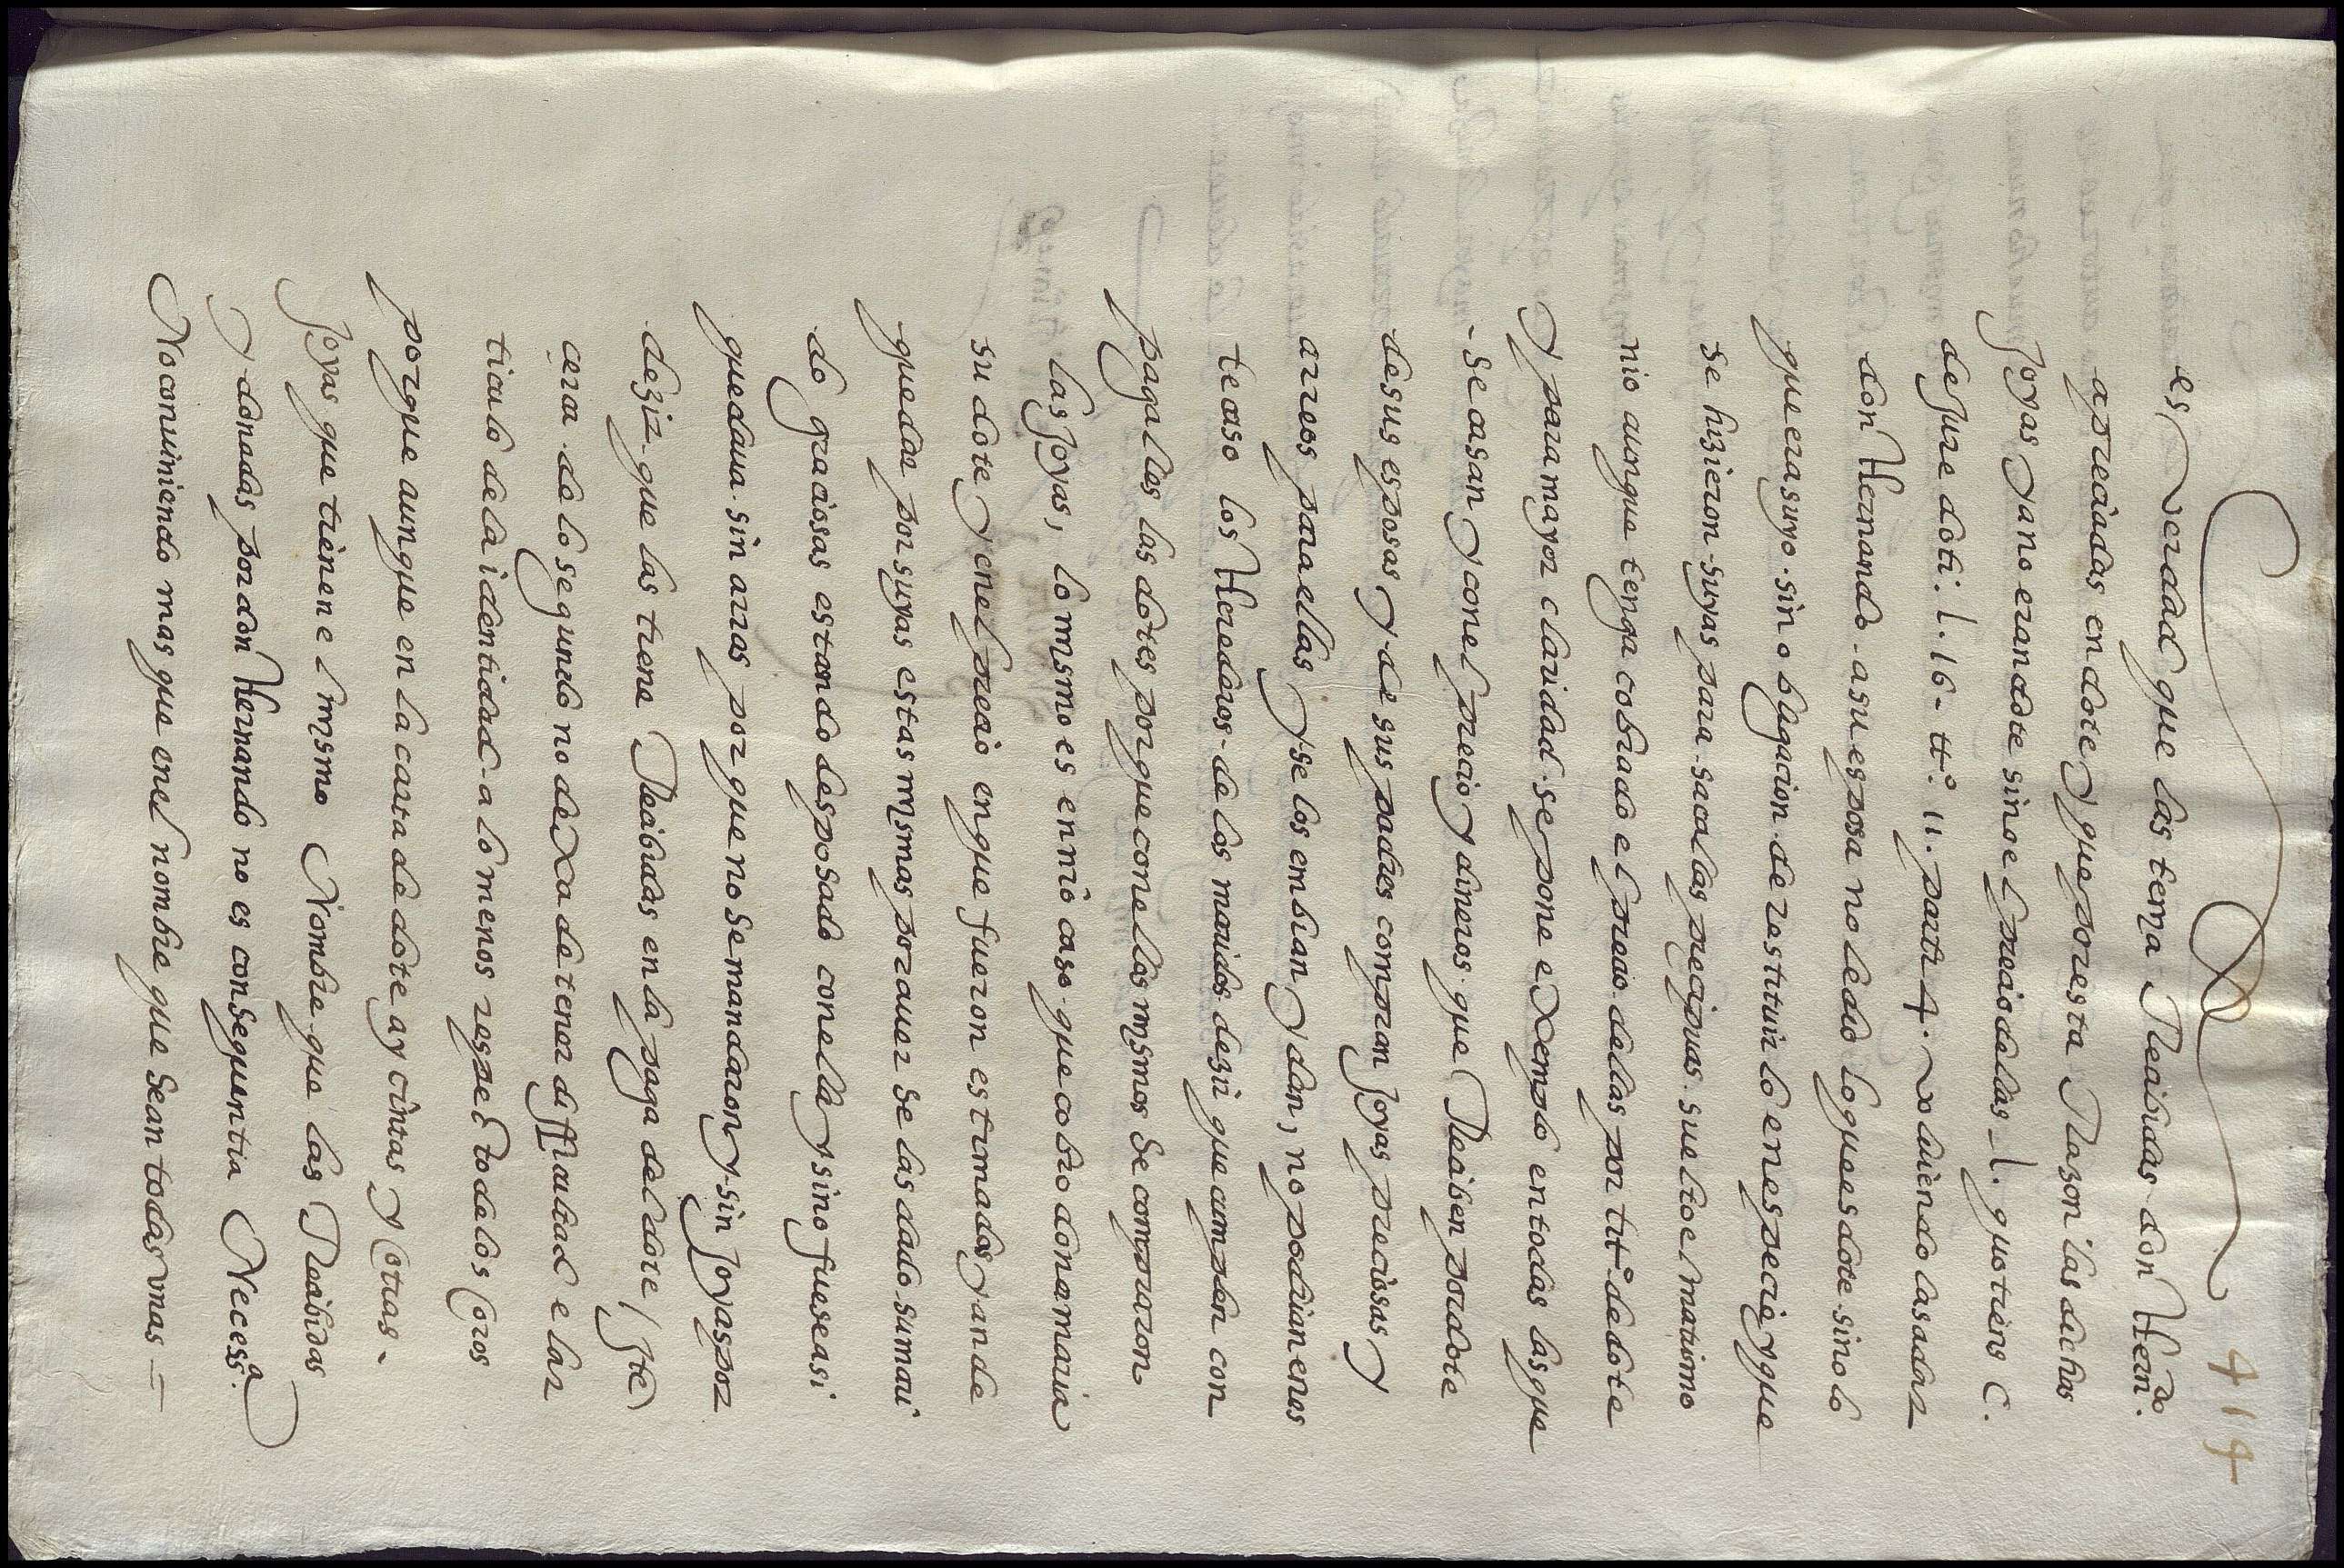 414
es, verdad que las tenia Recibidas don Hern.do
apreciadas en dote y que por esta Razon las dichas
Joyas ya no eran dote sino el precio de las _ l. quotiens C.
de jure doti. l. 16. tt.º 11. parti 4. volviendo las a dar
don Hernando a su esposa no le dio lo que es dote sino lo
que era suyo sin obligacion de restituir lo en especie y que
se hizieron suyas para sacallas precipuas suelto el matrimo
nio aunque tenga cobrado el precio dellas por tit.º de dote
Y para mayor claridad se pone exemplo en todas las que
se casan y con el precio y dineros que Reciben por dote
de sus esposas y de sus padres compran Joyas preciosas y
arreos para ellas y se los embian y dan, no podian en es
te caso los Herederos de los maridos dezir que cumplen con
pagalles las dotes porque con ellas mismos se compraron
las Joyas, lo mismo es en nro caso que cobro dona maria
su dote y en el precio en que fueron estimadas y an de
quedar por suyas estas mismas por averselas dado su mari
do graciosas estando desposado con ella y sino fuese asi
quedava sin arras por que no se mandaron y sin Joyas por
dezir que las tiene Recibidas en la paga del dote / Este
cerca de lo segundo no dexa de tener difficultad el ar
ticulo de la identidad a lo menos respecto de los Coros
porque aunque en la carta de dote ay cintas y Cotras
Joyas que tienen el mismo Nombre que las Recibidas
y donadas por don Hernando no es consequentia Necess.a
No conviniendo mas que en el nombre que sean todas unas =